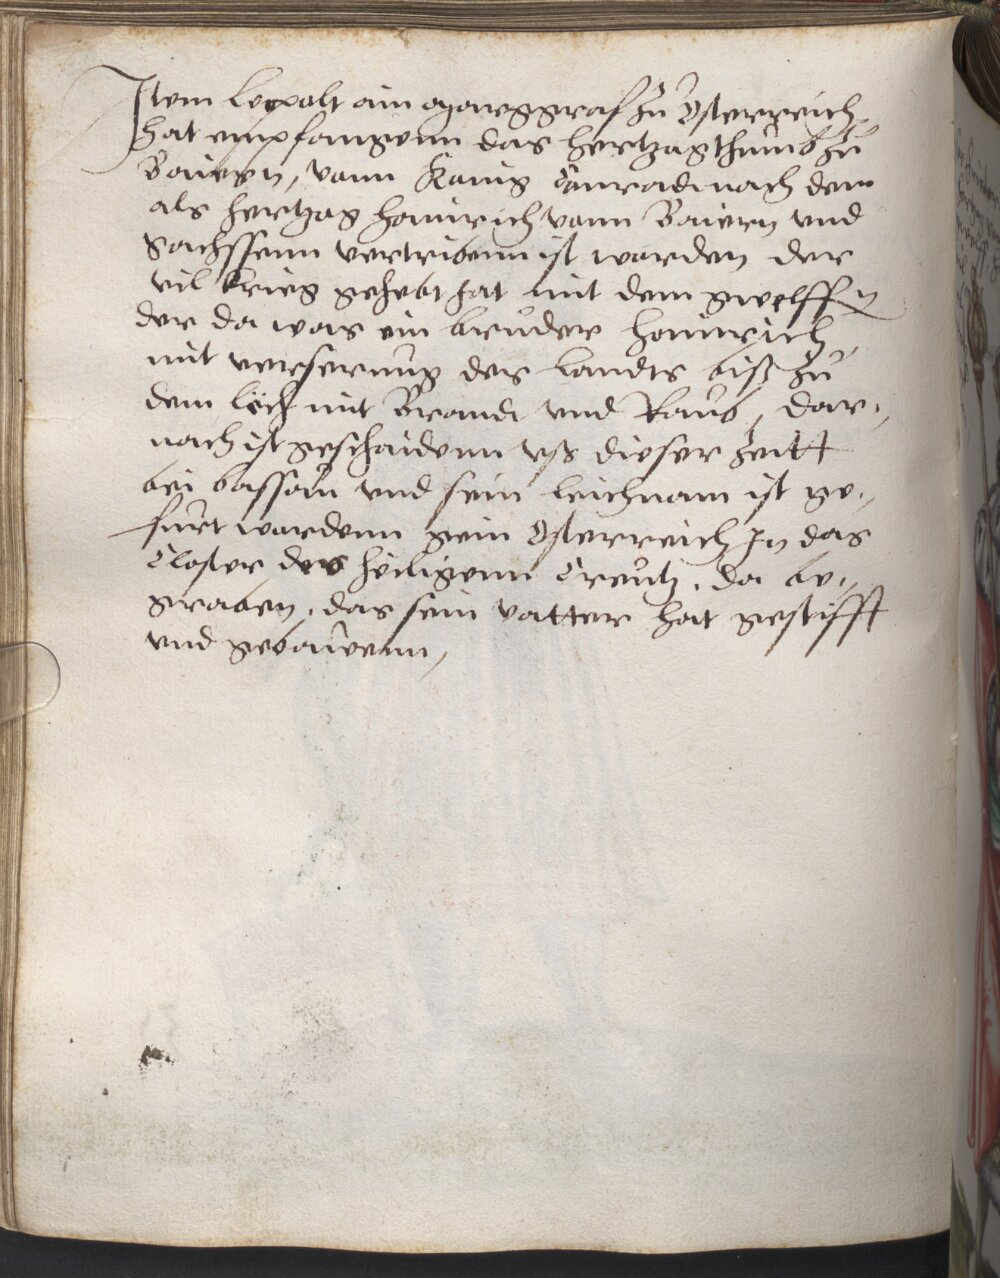 Item Leopalt ain Marggraf zu Osterreich
hat empfangenn das hertzagthumb zu
Baiern, vann Kanig Canradi nach dem
als hertzag hainrich vann Baiern vnd
Sachssenn vertribenn ist warden der
vil krieg gehebt hat mit dem gwelffn
der da was ein bruder hainrich
mit verserung des Landts biß zu
dem lech mit Brandt vnd Raub, dar,,
nach ist geschaidenn vß dieser Zeitt
bei bassaw vnd sein leichnam ist ge,,
furt wardenn gein Osterreich In das
Closter des heiligenn Creutz, da be,,
graben, das sein vatter hat gestifft
vnd gebauwenn,